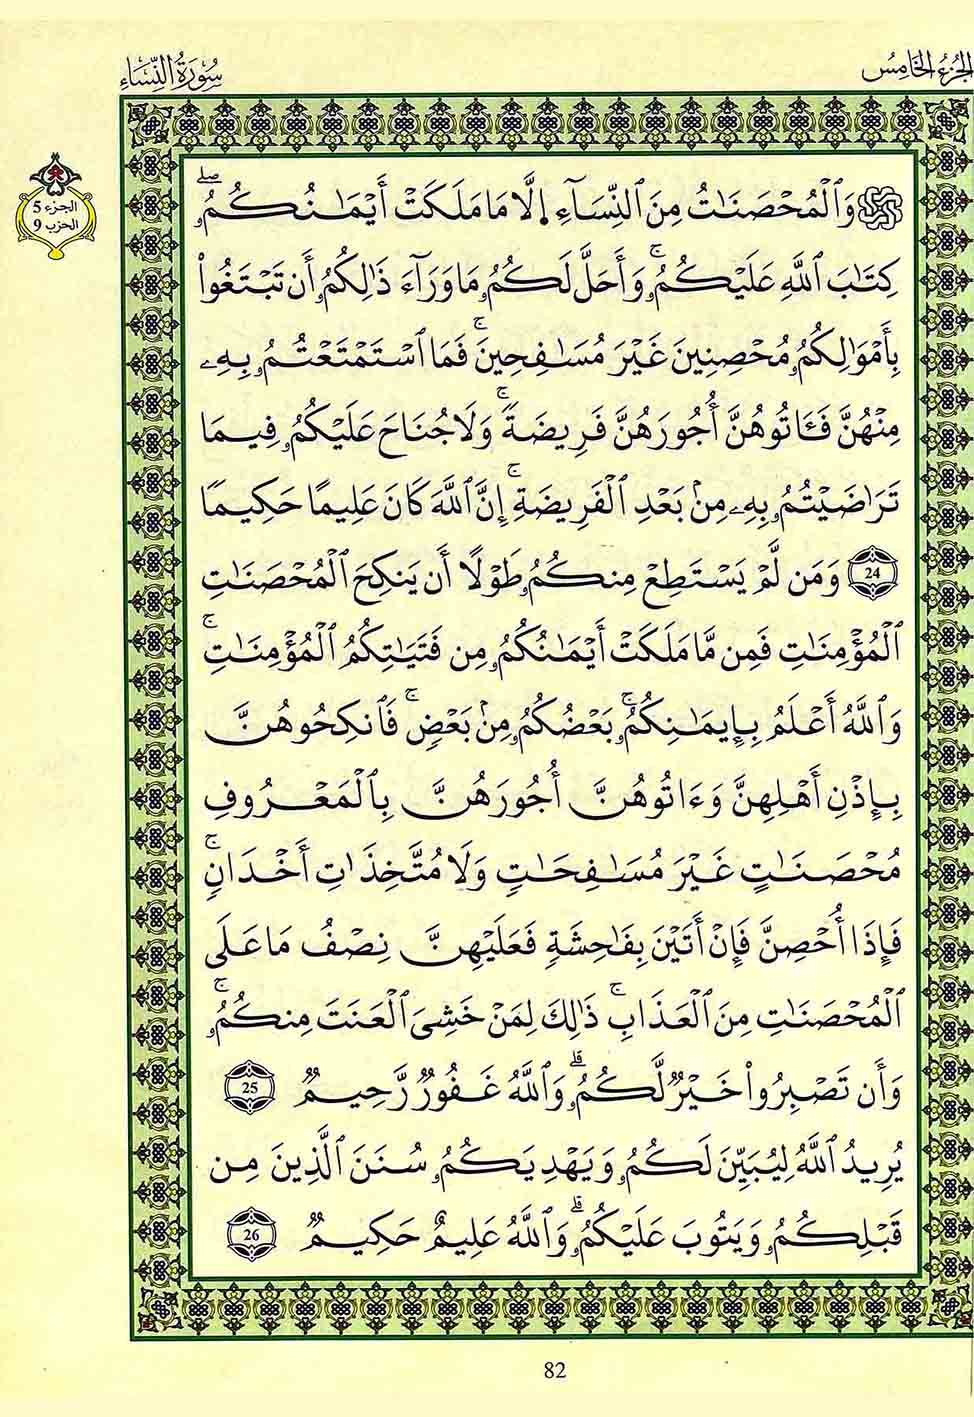 الجزء الخامس
سورة النساء
الجزء 5
الحزب 9
وَٱلْمُحْصَنَٰتُ مِنَ ٱلنِّسَآءِ الَّا مَا مَلَكَتَ اَيْمَٰنُكُمُۥۖ
كِتَٰبَ ٱللَّهِ عَلَيْكُمُۥۚ وَأَحَلَّ لَكُمُۥ مَا وَرَآءَ ذَٰلِكُمُۥٓ أَن تَبْتَغُوا۟
بِأَمْوَٰلِكُمُۥ مُحْصِنِينَ غَيْرَ مُسَٰفِحِينَۚ فَمَا ٱسْتَمْتَعْتُمُۥ بِهِۦ
مِنْهُنَّ فَـَٔاتُوهُنَّ أُجُورَهُنَّ فَرِيضَةًۚ وَلَا جُنَاحَ عَلَيْكُمُۥ فِيمَا
تَرَٰضَيْتُمُۥ بِهِۦ مِنۢ بَعْدِ ٱلْفَرِيضَةِۚ إِنَّ ٱللَّهَ كَانَ عَلِيمًا حَكِيمًا
24 وَمَن لَّمْ يَسْتَطِعْ مِنكُمُۥ طَوْلًا أَن يَنكِحَ ٱلْمُحْصَنَٰتِ
ٱلْمُؤْمِنَٰتِ فَمِن مَّا مَلَكَتْ أَيْمَٰنُكُمُۥ مِن فَتَيَٰتِكُمُ ٱلْمُؤْمِنَٰتِۚ
وَٱللَّهُ أَعْلَمُ بِإِيمَٰنِكُمُۥۚ بَعْضُكُمُۥ مِنۢ بَعْضٍۚ فَٱنكِحُوهُنَّ
بِإِذْنِ أَهْلِهِنَّ وَءَاتُوهُنَّ أُجُورَهُنَّ بِٱلْمَعْرُوفِ
مُحْصَنَٰتٍ غَيْرَ مُسَٰفِحَٰتٍ وَلَا مُتَّخِذَٰتِ أَخْدَانٍۚ
فَإِذَا أُحْصِنَّ فَإِنْ أَتَيْنَ بِفَٰحِشَةٍ فَعَلَيْهِنَّ نِصْفُ مَا عَلَى
ٱلْمُحْصَنَٰتِ مِنَ ٱلْعَذَابِۚ ذَٰلِكَ لِمَنْ خَشِىَ ٱلْعَنَتَ مِنكُمُۥۚ
وَأَن تَصْبِرُوا۟ خَيْرٌ لَّكُمُۥۗ وَٱللَّهُ غَفُورٌ رَّحِيمٌ 25
يُرِيدُ ٱللَّهُ لِيُبَيِّنَ لَكُمُۥ وَيَهْدِيَكُمُۥ سُنَنَ ٱلَّذِينَ مِن
قَبْلِكُمُۥ وَيَتُوبَ عَلَيْكُمُۥۗ وَٱللَّهُ عَلِيمٌ حَكِيمٌ 26
82